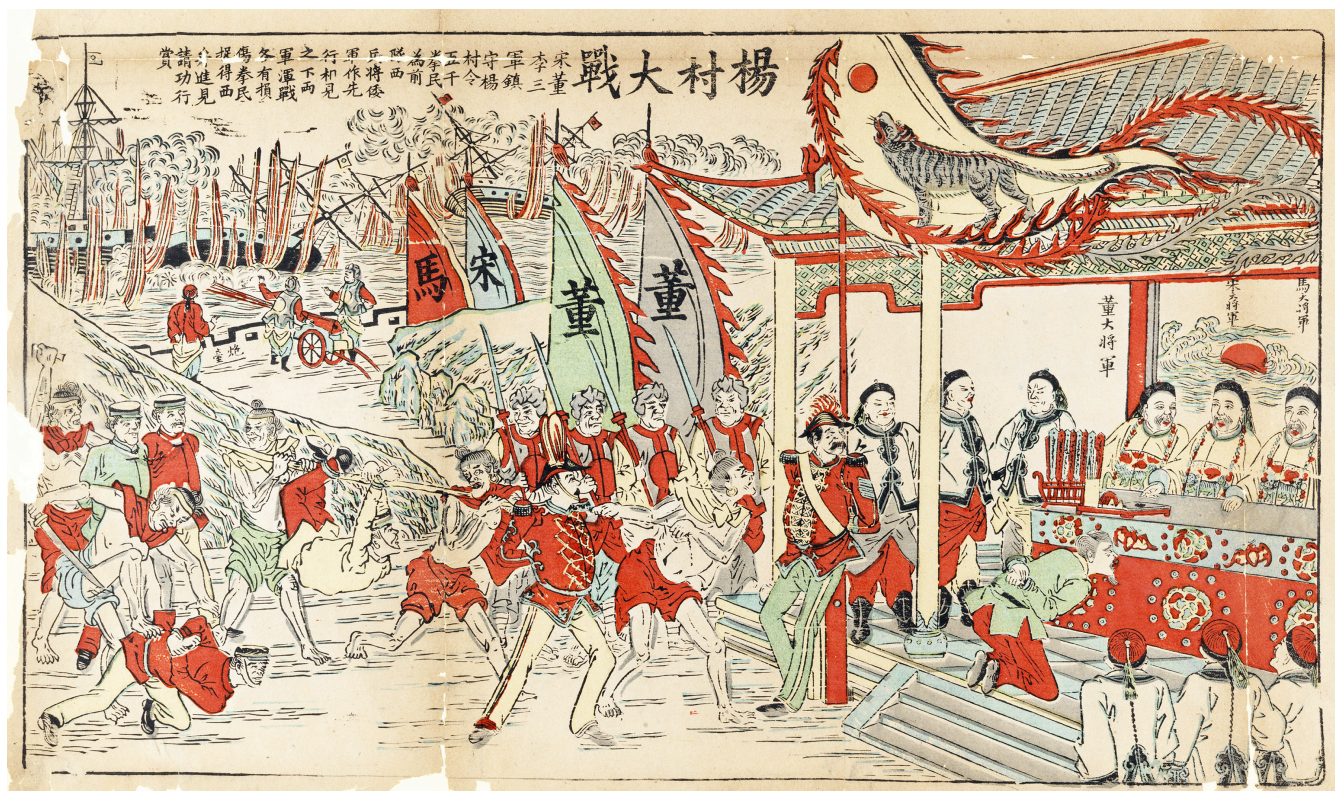 楊村大戰
宋董
李三
軍鎮
守楊
村令
五千
拳民
為前
隊西
兵將倭
軍作先
行相見
之下両
軍渾戰
各有損
傷拳民
捉得西
進見
請功行
賞
董
董
宋
馬
炮臺
馬大將軍
宋大將軍
董大將軍